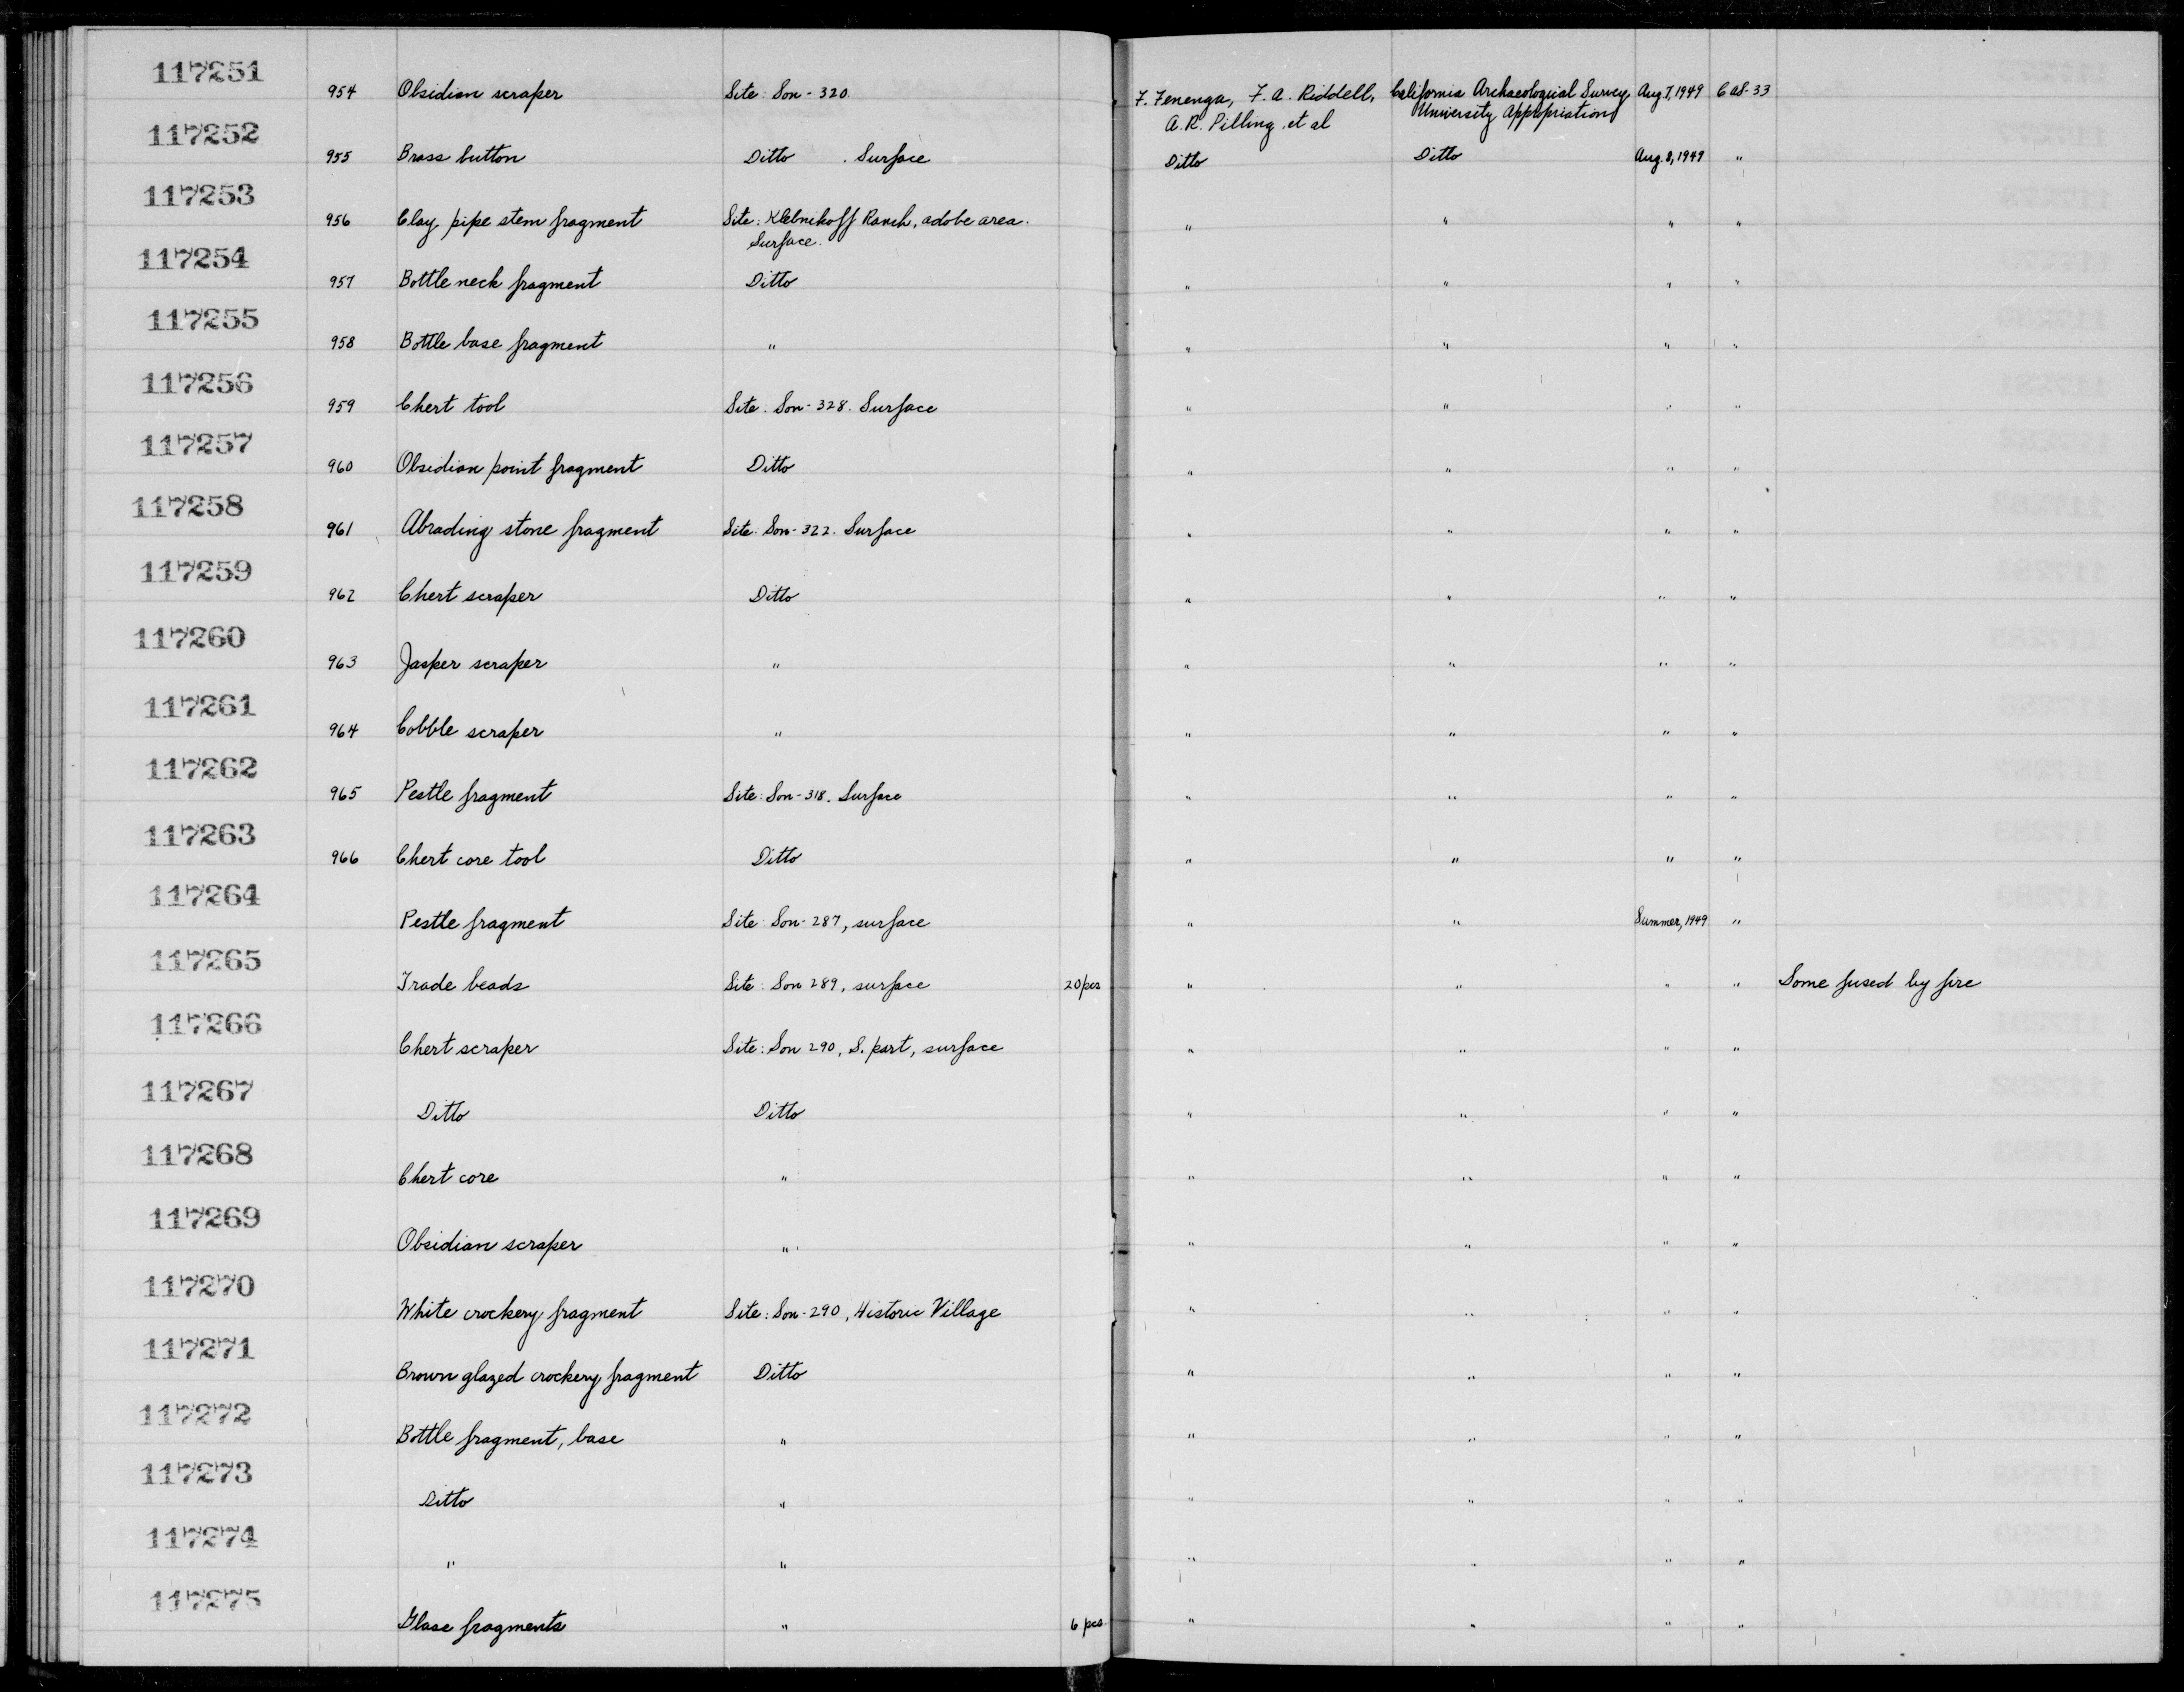 117251
954 Obsidian scraper Site: Son-320. F. Fenenga, F. A. Riddell, California Archaeological Survey Aug 7, 1949 CAS-33
A. R. Pilling, et al University Appropriation
117252
955 Brass button Ditto . Surface Ditto Ditto Aug. 8, 1949 "
117253
956 Clay pipe stem fragment Site: Klebnikoff Ranch, adobe area. " " " "
Surface.
117254
957 Bottle neck fragment Ditto " " " "
117255
958 Bottle base fragment " " " " "
117256
959 Chert tool Site: Son-328. Surface " " " "
117257
960 Obsidian point fragment Ditto " " " "
117258
961 Abrading stone fragment Site: Son-322. Surface " " " "
117259
962 Chert scraper Ditto " " " "
117260
963 Jasper scraper " " " " "
117261
964 Cobble scraper " " " " "
117262
965 Pestle fragment Site: Son-318. Surface " " " "
117263
966 Chert core tool Ditto " " " "
117264
Pestle fragment Site: Son-287, surface " " Summer, 1949 "
117265
Trade beads Site: Son 289, surface 20 pcs " " " " Some fused by fire
117266
Chert scraper Site: Son 290, S. part, surface " " " "
117267
Ditto Ditto " " " "
117268
Chert core " " " " "
117269
Obsidian scraper " " " " "
117270
White crockery fragment Site: Son-290, Historic Village " " " "
117271
Brown glazed crockery fragment Ditto " " " "
117272
Bottle fragment, base " " " " "
117273
Ditto " " " " "
117274
" " " " " "
117275
Glass fragments " 6 pcs " " " "